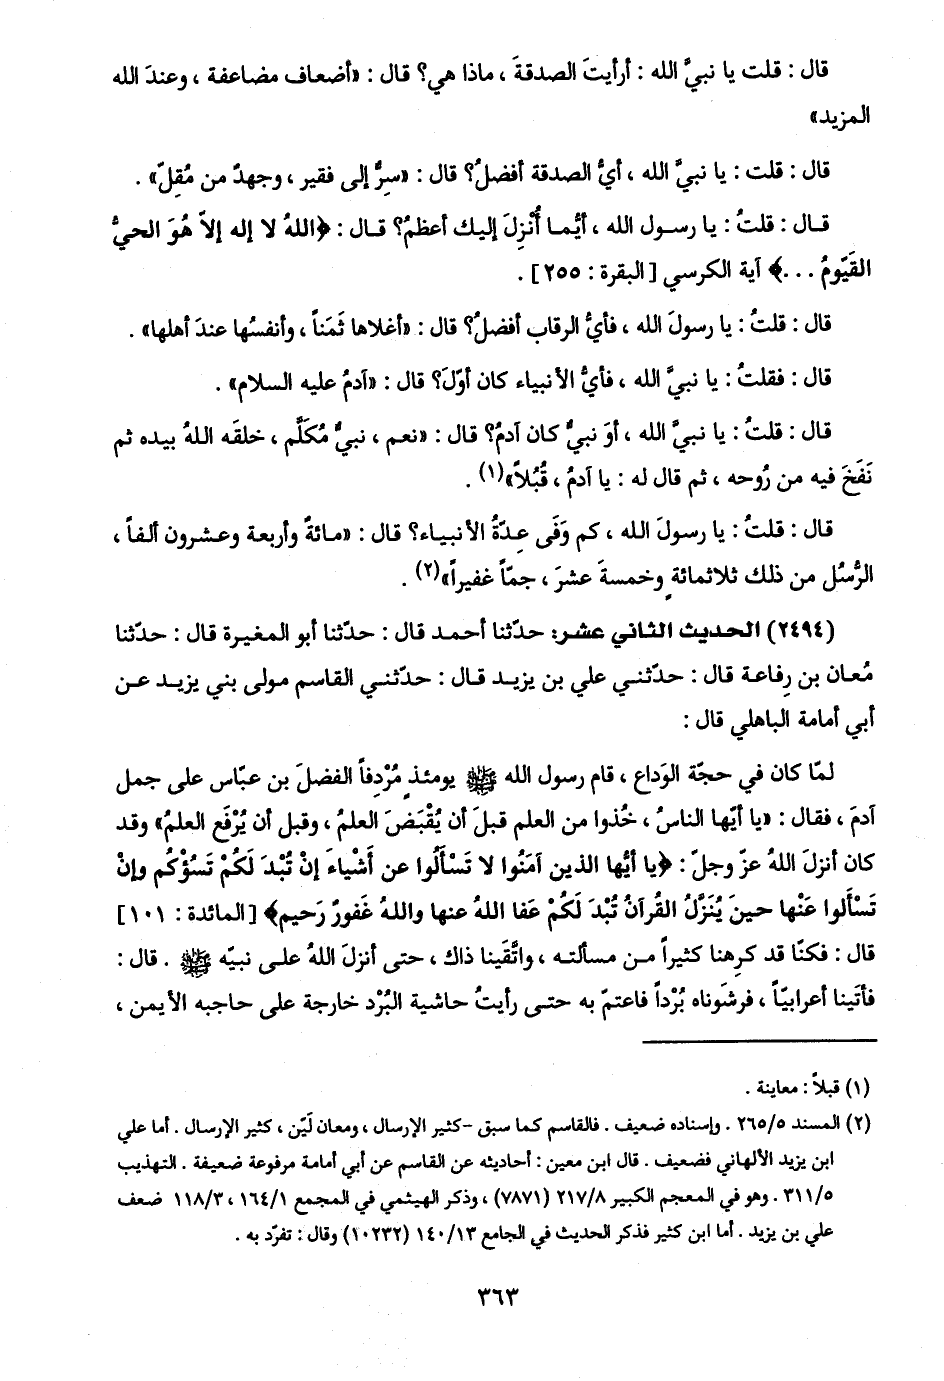 قال : قلت يا نبيَّ الله : أرأيتَ الصدقةَ ، ماذا هي؟ قال : «أضعاف مضاعفة ، وعندَ الله
المزيد»
قال : قلت : يا نبيَّ الله ، أيُّ الصدقة أفضلُ؟ قال : «سِرٌّ إلى فقير ، وجهدٌ من مُقِلّ» .
قـال : قلتُ : يا رسـول الله ، أيُّمـا أُنْزِلَ إليـك أعظمُ؟ قـال : ﴿اللهُ لا إله إلاّ هُوَ الحيُّ
القَيّومُ . . .﴾ آية الكرسي [البقرة : ٢٥٥] .
قال : قلتُ : يا رسولَ الله ، فأيُّ الرقاب أفضلُ؟ قال : «أغلاها ثَمَناً ، وأنفسُها عندَ أهلها» .
قال : فقلتُ : يا نبيَّ الله ، فأيُّ الأنبياء كان أوّلَ؟ قال : «آدمُ عليه السلام» .
قال : قلتُ : يا نبيَّ الله ، أوَ نبيٌّ كان آدمُ؟ قال : «نعم ، نبيٌّ مُكَلَّم ، خلقَه اللهُ بيده ثم
نَفَخَ فيه من رُوحه ، ثم قال له : يا آدمُ ، قُبُلاً»(١) .
قال : قلتُ : يا رسولَ الله ، كم وَفَى عِدّةُ الأنبـيـاء؟ قال : «مـائةٌ وأربعة وعـشـرون ألفـاً ،
الرُّسُل من ذلك ثلاثمائةٍ وخمسةَ عشرَ ، جمّاً غفيراً»(٢) .
(٢٤٩٤) الحديث الثاني عشر: حدّثنا أحمد قال : حدّثنا أبو المغيرة قال : حدّثنا
مُعـان بن رِفاعـة قال : حدّثنـي علي بن يزيـد قـال : حدّثنـي القاسم مـولى بني يزيـد عـن
أبي أمامة الباهلي قال :
لمّا كان في حجّة الوَداع ، قام رسول الله ﷺ يومئذٍ مُرْدِفاً الفضلَ بن عبّاس على جمل
آدمَ ، فقال : «يا أيّها الناسُ ، خُذوا من العلم قبلَ أن يُقْبَضَ العلمُ ، وقبل أن يُرْفَع العلمُ» وقد
كان أنزلَ اللهُ عزّ وجلّ : ﴿يا أيُّها الذين آمَنُوا لا تَسْأَلُوا عن أَشْياءَ إنْ تُبْدَ لَكُمْ تَسُؤْكُم وإنْ
تَسْأَلوا عَنْها حينَ يُنَزَّلُ القُرآنُ تُبْدَ لَكُمْ عَفا اللهُ عنها واللهُ غَفورٌ رَحيم﴾ [المائدة : ١٠١]
قال : فكنّا قد كرِهنا كثيراً مـن مسألتـه ، واتَّقَينا ذاك ، حتى أنزلَ اللهُ علـى نبيّه ﷺ . قال :
فأتينا أعرابيّاً ، فرشَوناه بُرْداً فاعتمّ به حتـى رأيتُ حاشية البُرْد خارجة على حاجبه الأيمن ،
(١) قبلاً : معاينة .
(٢) المسند ٢٦٥/٥ . وإسناده ضعيف . فالقاسم كما سبق -كثير الإرسال ، ومعان لَيّن ، كثير الإرسال . أما علي
ابن يزيد الألهاني فضعيف . قال ابن معين : أحاديثه عن القاسم عن أبي أمامة مرفوعة ضعيفة . التهذيب
٣١١/٥ . وهو في المعجم الكبير ٢١٧/٨ (٧٨٧١) ، وذكر الهيثمي في المجمع ١٦٤/١ ، ١١٨/٣ ضعف
علي بن يزيد . أما ابن كثير فذكر الحديث في الجامع ١٤٠/١٣ (١٠٢٣٢) وقال : تفرّد به .
٣٦٣